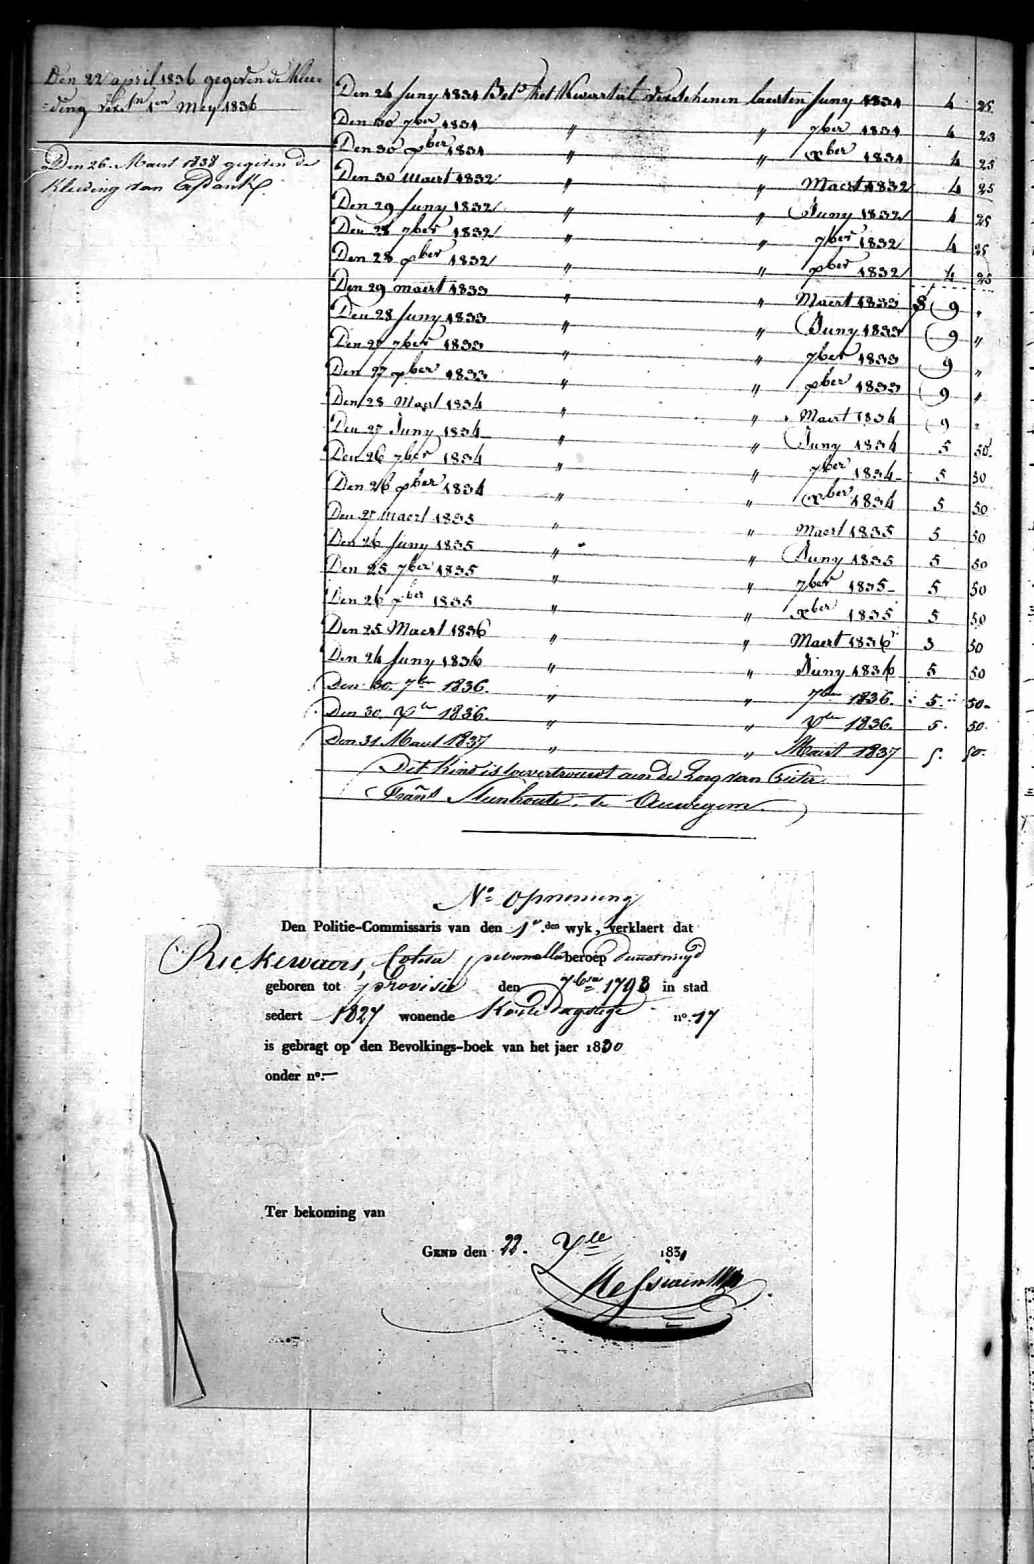 Den 22 april 1836 gegeven de klee-
=ding versn 1en Mey 1836
Den 26 Maert 1838 gegeven de
Kleeding van
Den 24 Juny 1831 Betd het Kwartael verschenen laesten Juny 1831 4 25
Den 30 7ber 1831 " " 7ber 1831 4 25
Den 30 xber 1831 " " xber 1831 4 25
Den 30 Maert 1832 " " Maert 1832 4 25
Den 29 Juny 1832 " " Juny 1832 4 25
Den 28 7ber 1832 " " 7ber 1832 4 25
Den 28 xber 1832 " " xber 1832 4 25
Den 29 maert 1833 " " Maert 1833 9 "
Den 28 Juny 1833 " " Juny 1833 9 "
Den 27 7ber 1833 " " 7ber 1833 9 "
Den 27 xber 1833 " " xber 1833 9 "
Den 28 Maert 1834 " " Maert 1834 9 "
Den 27 Juny 1834 " " Juny 1834 5 50
Den 26 7ber 1834 " " 7ber 1834 5 50
Den 26 xber 1834 " " xber 1834 5 50
Den 27 maert 1835 " " Maert 1835 5 50
Den 26 Juny 1835 " " Juny 1835 5 50
Den 25 7ber 1835 " " 7ber 1835 5 50
Den 26 xber 1835 " " xber 1835 5 50
Den 25 Maert 1836 " " Maert 1836 5 50
Den 24 Juny 1836 " " Juny 1836 5 50
Den 30 7ber 1836. " " 7ber 1836. 5. 50.
Den 30 Xber 1836. " " Xber 1836. 5. 50.
Den 31 Maert 1837 " " Maert 1837 5. 50.
Dit Kind is toevertrouwt aen de Zorg van
Frans Steenhoute te Auwegem
No opneming
Den Politie-Commissaris van den 1en den wyk, verklaert dat
Rickewaers, petronella beroep dienstmeyd
geboren tot provisie den 7ber 1793 in stad
sedert 1827 wonende Korte Dagstege no. 17
is gebragt op den Bevolkings-boek van het jaer 1830
onder no. —
Ter bekoming van
GEND den 22. 1831